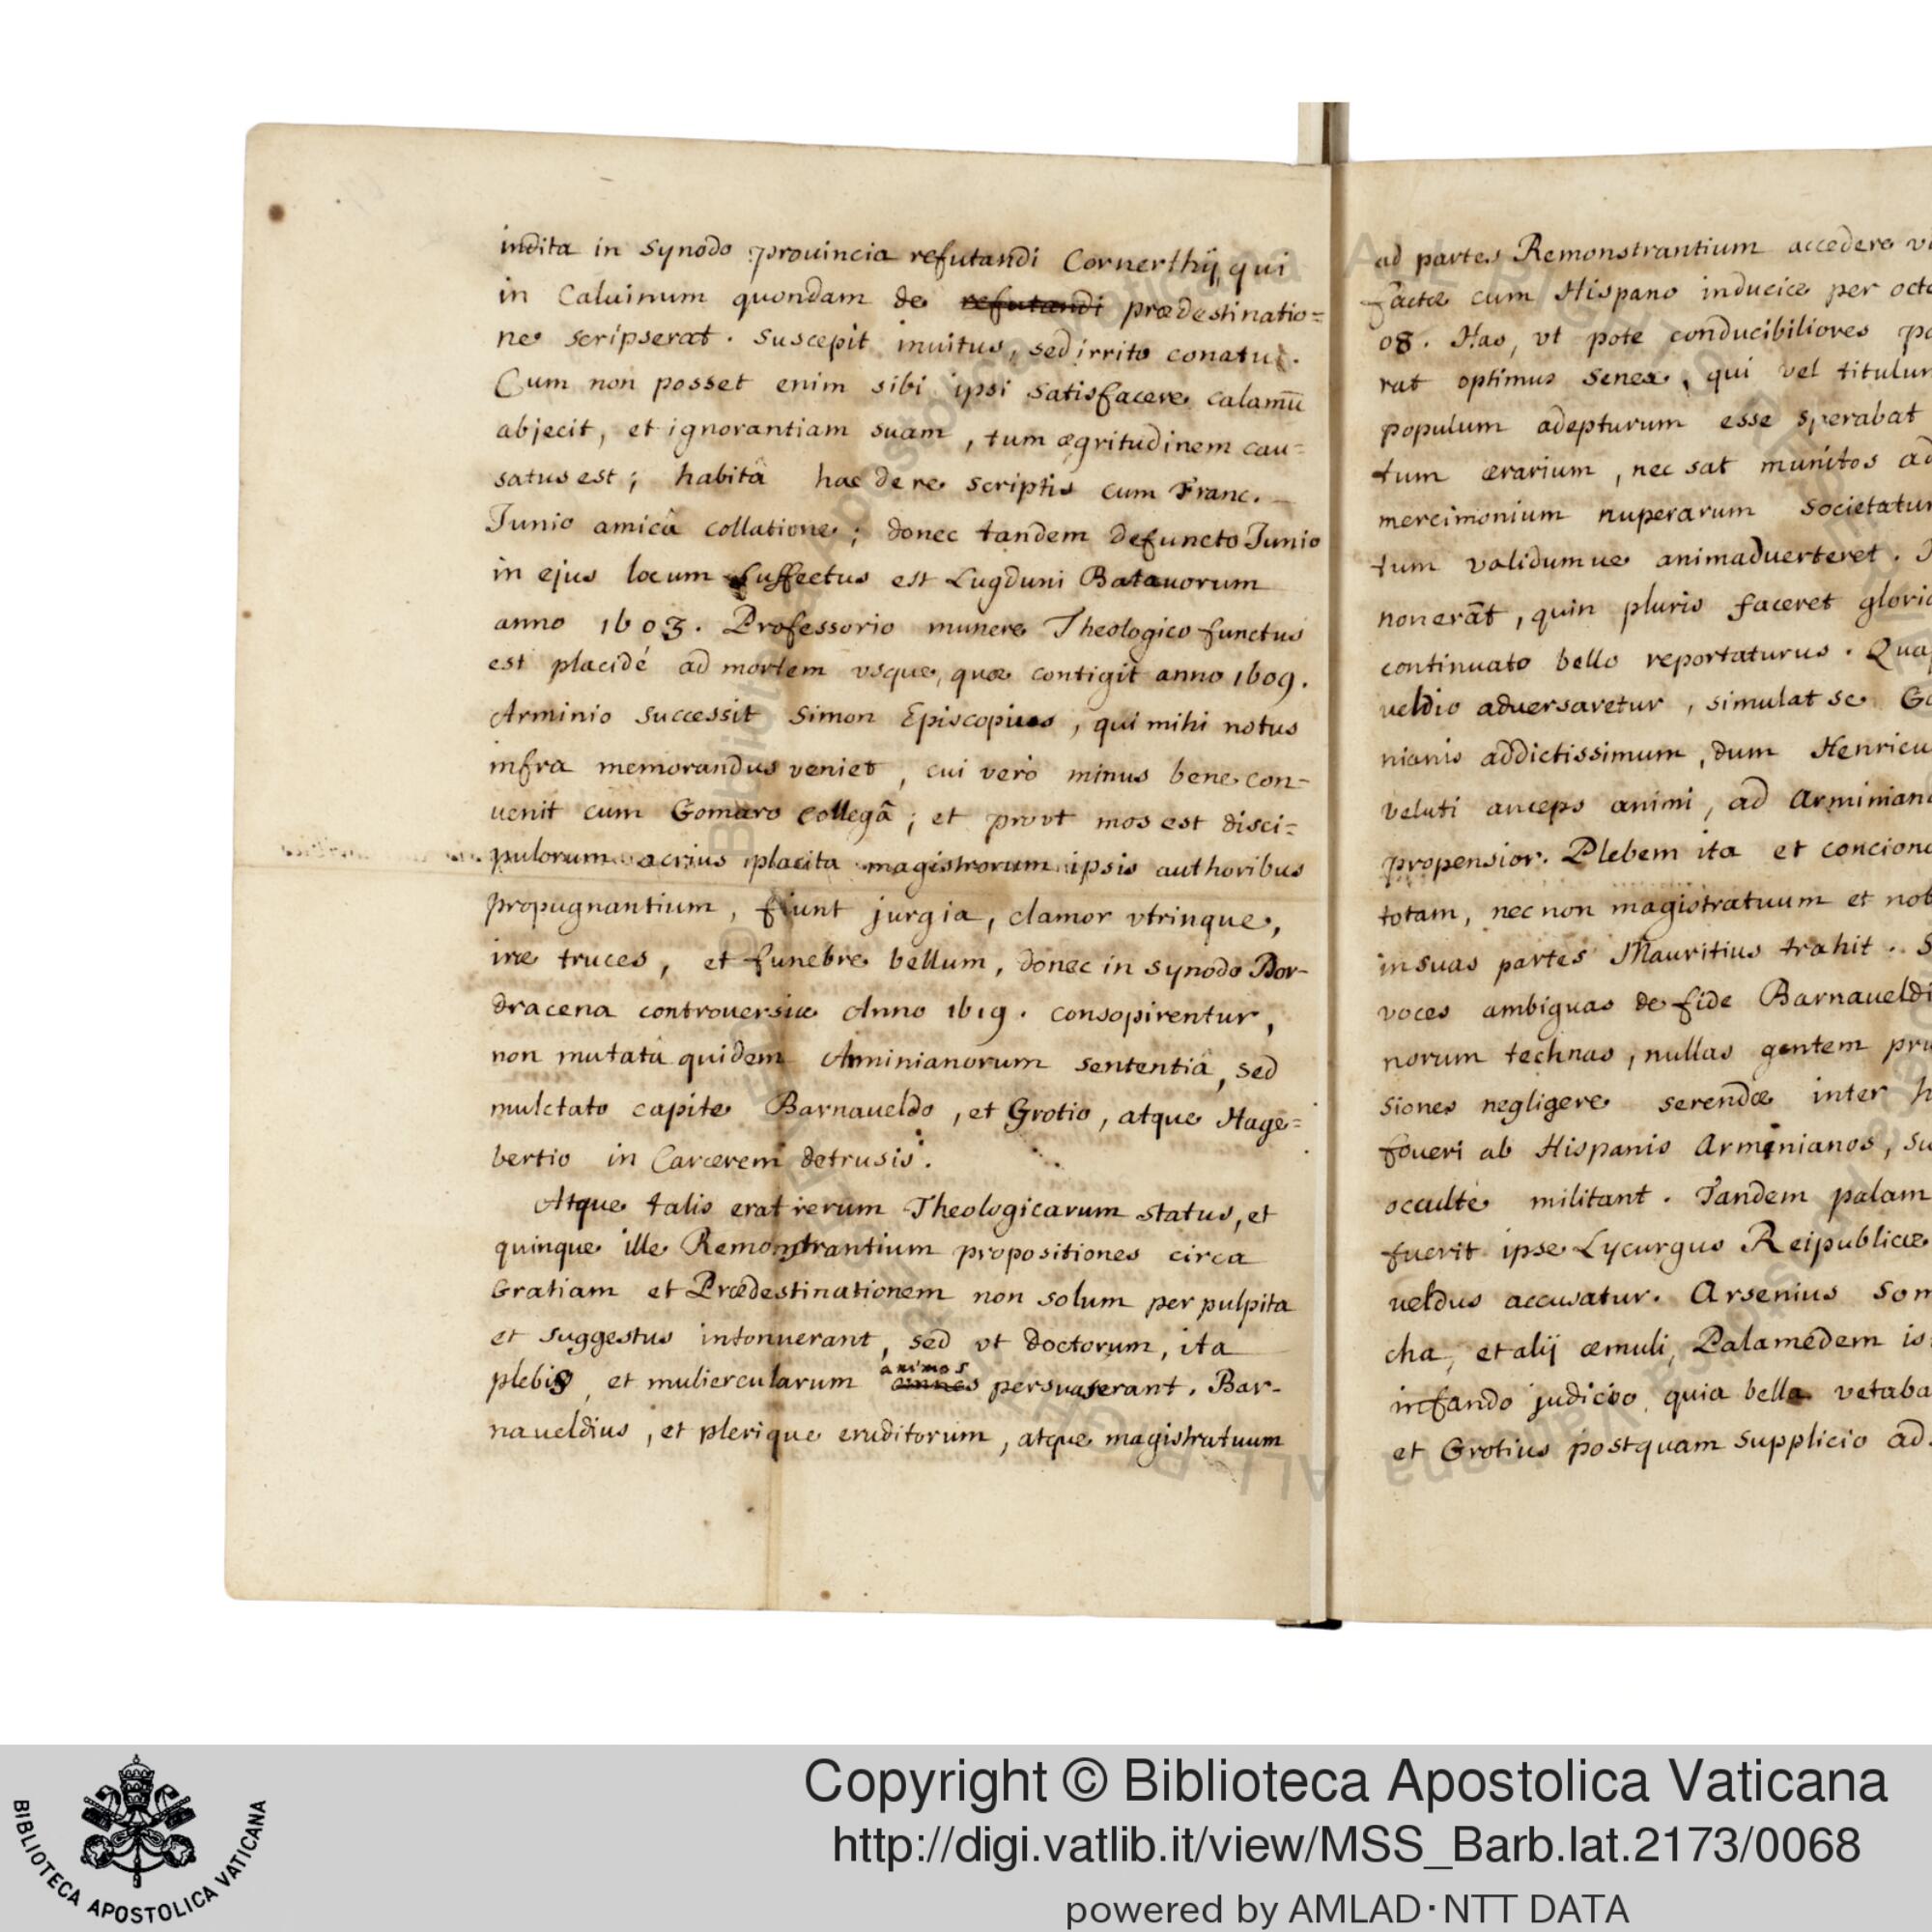 indita in Synodo prouincia refutandi Cornerthij, qui
in Caluinum quondam de refutandi prædestinatio=
ne scripserat. Suscepit inuitus, sed irrito conatu.
Cum non posset enim sibi ipsi satisfacere calamū
abjecit, et ignorantiam suam, tum ægritudinem cau=
satus est; habitâ hac de re scriptis cum Franc.
Junio amicâ collatione; donec tandem defuncto Junio
in ejus locum suffectus est Lugduni Batauorum
anno 1603. Professorio munere Theologico functus
est placidé ad mortem vsque, quæ contigit anno 1609.
Arminio successit Simon Episcopius, qui mihi notus
infra memorandus veniet, cui verò minus bene con-
uenit cum Gomaro collegâ; et prout mos est disci=
pulorum acrius placita magistrorum ipsis authoribus
propugnantium, fiunt jurgia, clamor vtrinque,
iræ truces, et funebre bellum, donec in synodo Dor-
dracena controuersiæ Anno 1619. consopirentur,
non mutatâ quidem Arminianorum sententiâ, sed
mulctato capite Barnaueldo, et Grotio, atque Hage=
bertio in Carcerem detrusis.
Atque talis erat rerum Theologicarum status, et
quinque ille Remonstrantium propositiones circa
Gratiam et Prædestinationem non solum per pulpita
et suggestus intonuerant, sed vt doctorum, ita
animos
plebis, et muliercularum omnes persuaserant. Bar-
naueldius, et plerique eruditorum, atque magistratuum
ad partes Remonstrantium accedere
factæ cum Hispano induciæ per
08. Has, vt pote conducibiliores
rat optimus senex, qui vel
populum adepturum esse sperabat
tum ærarium, nec sat munitos
mercimonium nuperarum
tum validumue animaduerteret.
non erāt, quin pluris faceret
continuato bello reportaturus.
ueldio aduersaretur, simulat se
nianis addictissimum, dum
veluti anceps animi, ad
propensior. Plebem ita et
totam, nec non magistratuum et
in suas partes Mauritius trahit.
voces ambiguas de fide
norum technas, nullas gentem
siones negligere serendæ inter
foueri ab Hispanis Arminianos,
occulté militant. Tandem palam
fuerit ipse Lycurgus Reipublicæ
ueldus accusatur. Arsenius
cha, et alij æmuli, Palamedem
infando judicio, quia bella
et Grotius postquam supplicio
BIBLIOTECA APOSTOLICA VATICANA
Copyright © Biblioteca Apostolica Vaticana
http://digi.vatlib.it/view/MSS_Barb.lat.2173/0068
powered by AMLAD·NTT DATA